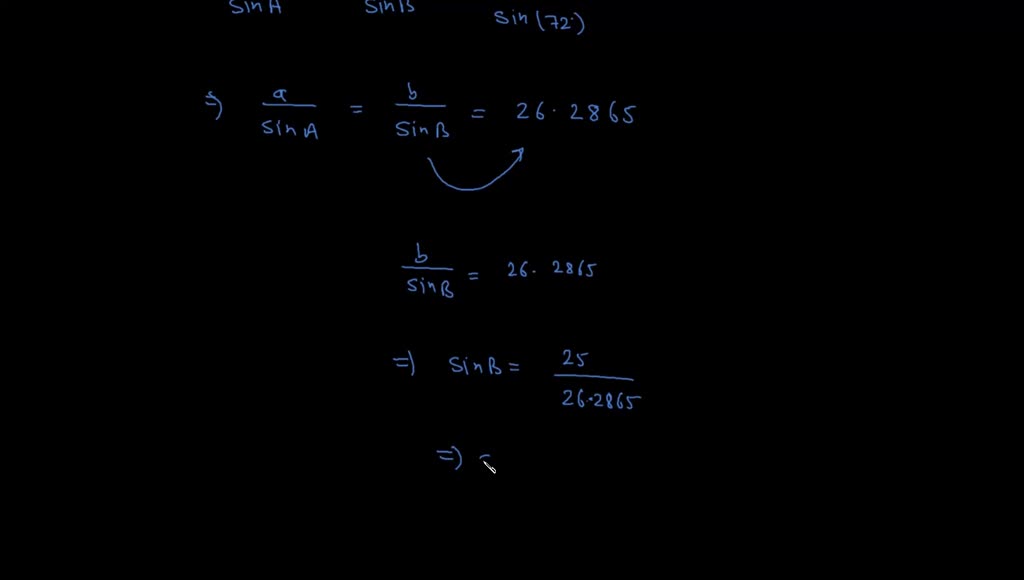 sin A sin B sin (72°)
=) a/sin A = b/sin B = 26.2865
b/sin B = 26.2865
=) sin B = 25/26.2865
=)